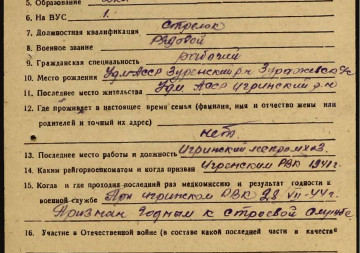 5. Образование
6. На ВУС 1.
7. Должностная квалификация Стрелок
8. Военное звание Рядовой
9. Гражданская специальность рабочий
10. Место рождения Удм АССР Зуренский р-н
11. Последнее место жительства Удм АССР Игринский р-н
12. Где проживает в настоящее время семья (фамилия, имя и отчество жены или
родителей и точный их адрес)
Нет.
13. Последнее место работы и должность Игринский леспромхоз.
14. Каким рейгорвоенкоматом и когда призван Игренским РВК 1941 г.
15. Когда и где проходил последний раз медкомиссию и результат годности к
военной службе При игринском РВК 28 VII-44 г.
Признан годным к строевой службе
16. Участие в Отечественной войне (в составе какой последней части и в качеств